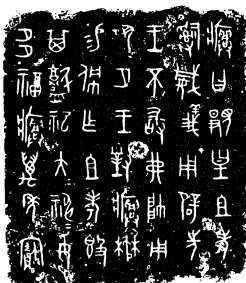 𤼈曰覭皇且考
嗣威義用辟先
王不敢弗帥用
夙夕王對𤼈楙
易佩乍且考簋
其盩祀大神妥
多福𤼈萬年寶